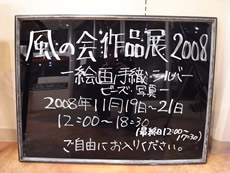 風の会作品展2008
―絵画・手織・シルバー
ビーズ・写真―
2008年11月19日~21日
12:00~18:30
(最終日12:00~
17:30)
ご自由にお入りください。